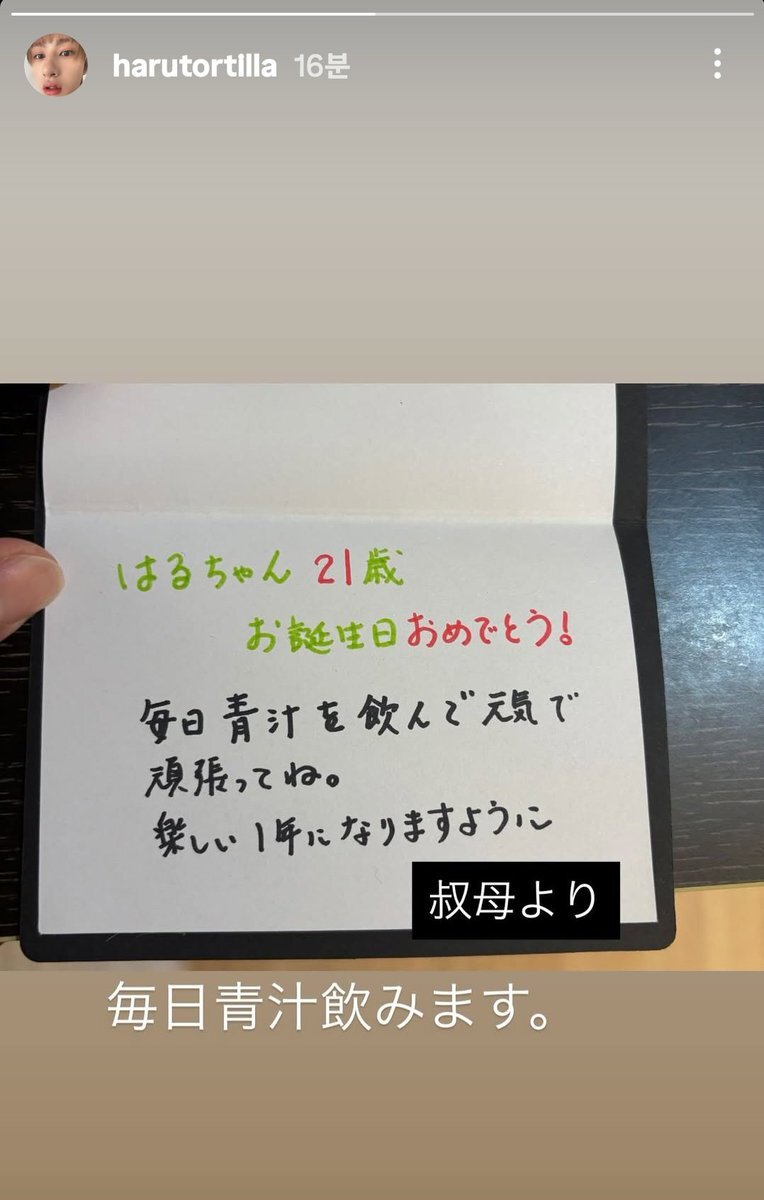 harutortilla 16분
はるちゃん 21歳
お誕生日おめでとう!
毎日青汁を飲んで元気で
頑張ってね。
楽しい1年になりますように
叔母より
毎日青汁飲みます。